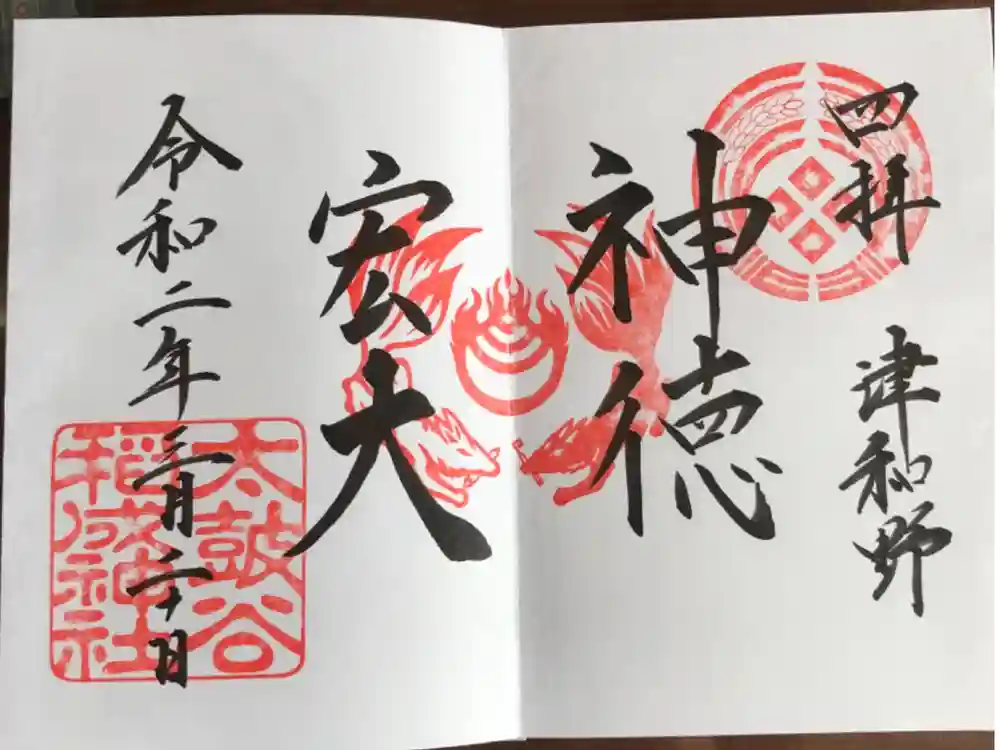 四拝
津和野
神徳
宏大
令和二年三月二十日
太鼓谷
稻成神社